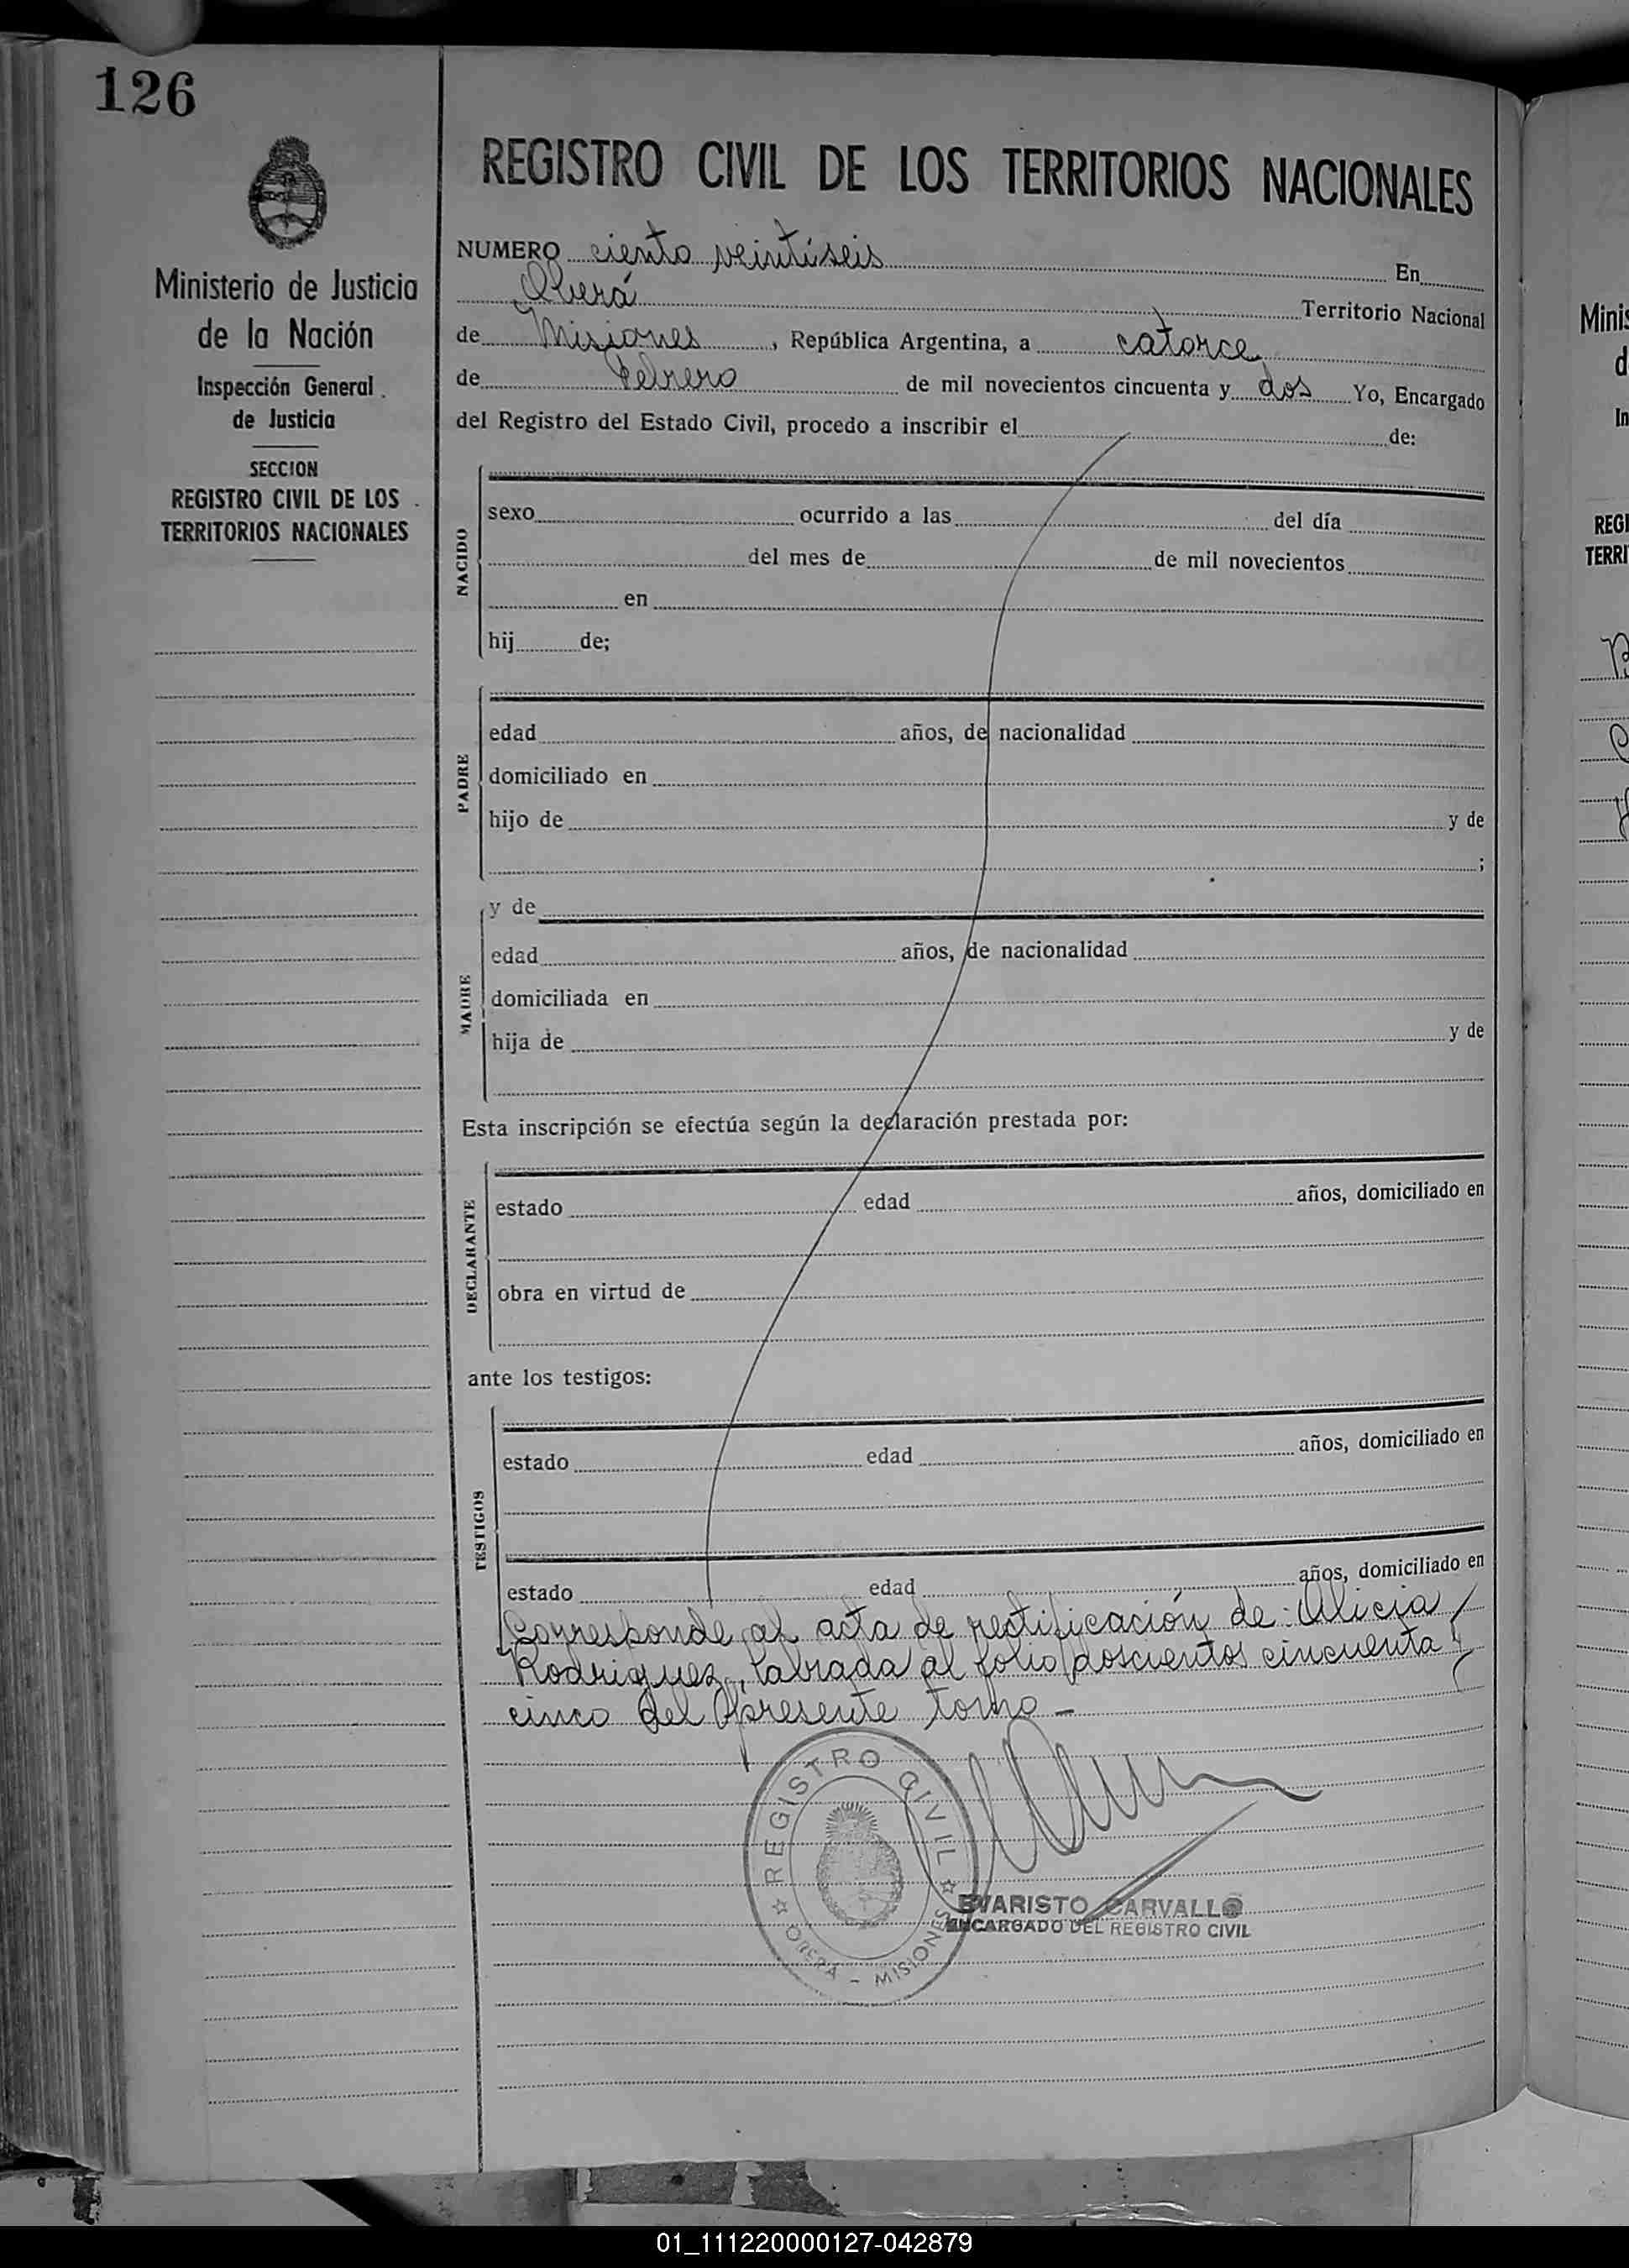 126
Ministerio de Justicia
de la Nación
Inspección General
de Justicia
SECCION
REGISTRO CIVIL DE LOS
TERRITORIOS NACIONALES
REGISTRO CIVIL DE LOS TERRITORIOS NACIONALES
NUMERO ciento veintiseis En
Oberá Territorio Nacional
de Misiones, República Argentina, a catorce
de Febrero de mil novecientos cincuenta y dos Yo, Encargado
del Registro del Estado Civil, procedo a inscribir el de:
NACIDO
sexo ocurrido a las del día
del mes de de mil novecientos
en
hij de;
PADRE
edad años, de nacionalidad
domiciliado en
hijo de y de
;
MADRE
y de
edad años, de nacionalidad
domiciliada en
hija de y de
Esta inscripción se efectúa según la declaración prestada por:
DECLARANTE
estado edad años, domiciliado en
obra en virtud de
ante los testigos:
TESTIGOS
estado edad años, domiciliado en
estado edad años, domiciliado en
Corresponde al acta de rectificación de: Alicia
Rodriguez, labrada al folio doscientos cincuenta y
cinco del presente tomo -
REGISTRO CIVIL
OBERÁ - MISIONES
EVARISTO CARVALLO
ENCARGADO DEL REGISTRO CIVIL
Minis
d
In
REGI
TERRI
01_111220000127-042879